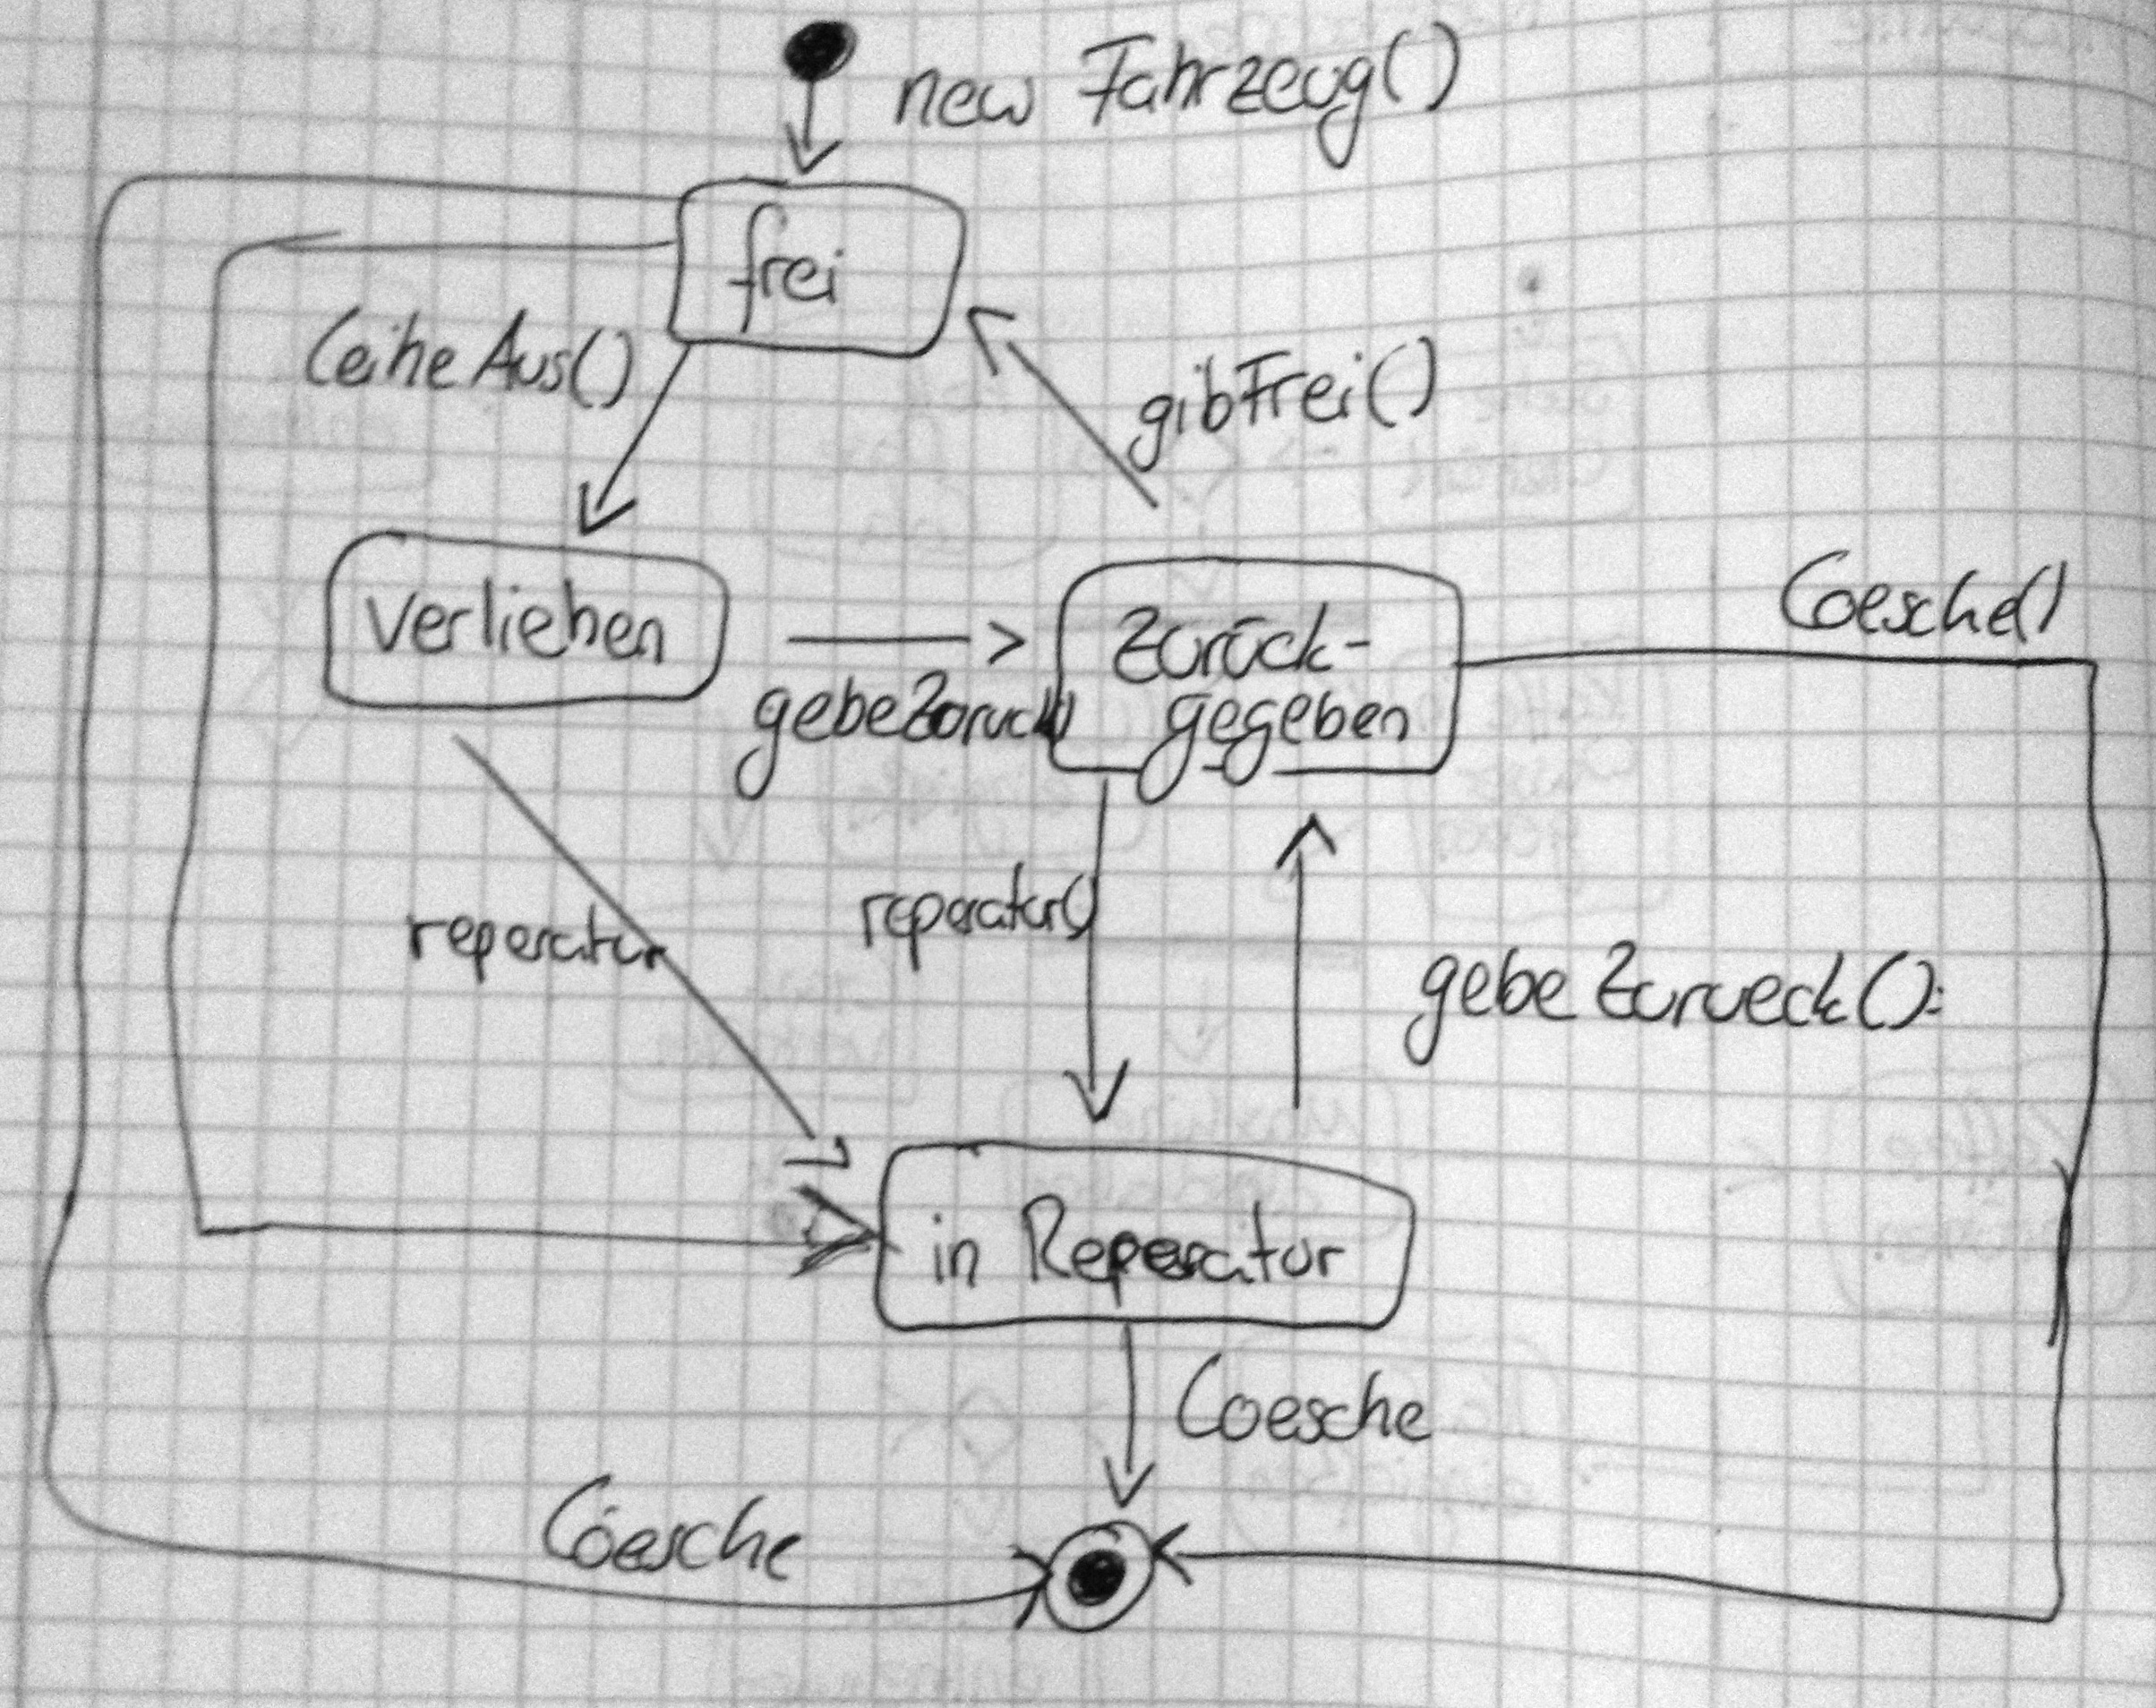 new Fahrzeug()
frei
leiheAus()
gibFrei()
verliehen
zurück-
gegeben
loesche()
gebeZurück()
reperatur
reperatur()
gebeZurueck():
in Reperatur
loesche
loesche